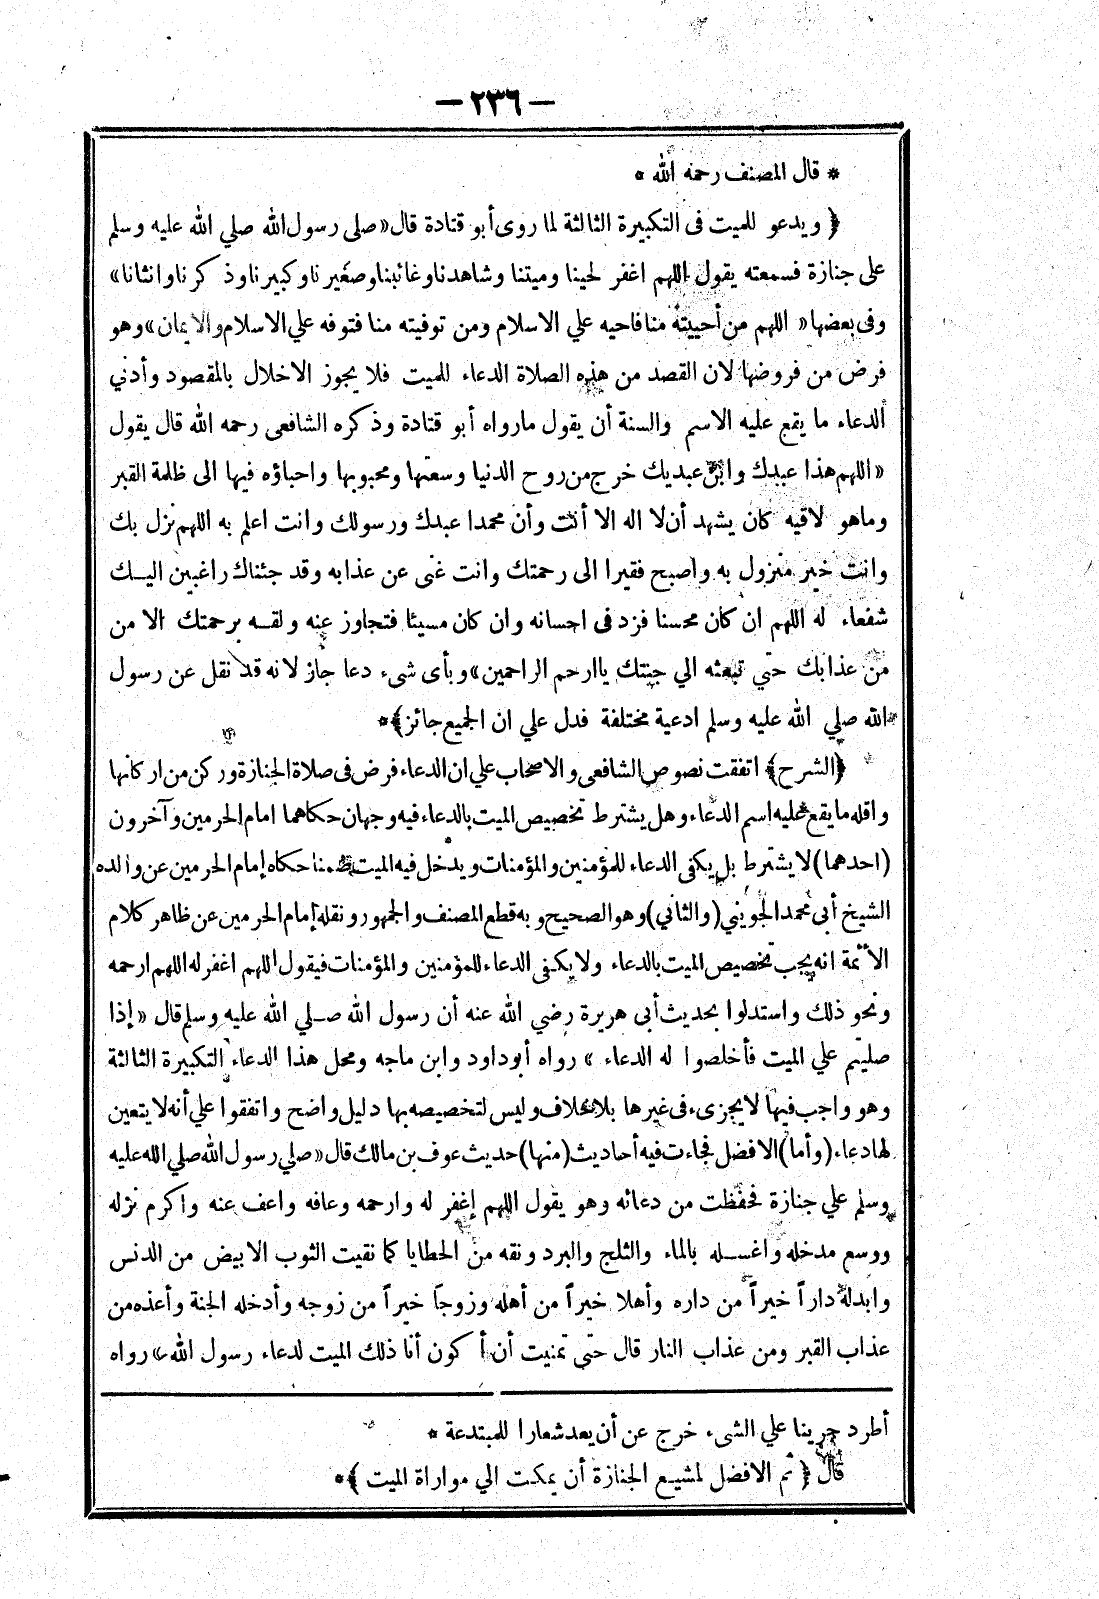 — ٢٣٦ —
* قال المصنف رحمه الله *
﴿ ويدعو للميت فى التكبيرة الثالثة لما روى أبو قتادة قال «صلى رسول الله صلي الله عليه وسلم
على جنازة فسمعته يقول اللهم اغفر لحينا وميتنا وشاهدنا وغائبنا وصغيرنا وكبيرنا وذكرنا وانثانا»
وفى بعضها « اللهم من أحييته منا فاحيه علي الاسلام ومن توفيته منا فتوفه علي الاسلام والايمان» وهو
فرض من فروضها لان القصد من هذه الصلاة الدعاء للميت فلا يجوز الاخلال بالمقصود وأدني
الدعاء ما يقع عليه الاسم والسنة أن يقول مارواه أبو قتادة وذكره الشافعى رحمه الله قال يقول
«اللهم هذا عبدك وابن عبديك خرج من روح الدنيا وسعتها ومحبوبها واحباؤه فيها الى ظلمة القبر
وماهو لاقيه كان يشهد أن لا اله الا أنت وأن محمدا عبدك ورسولك وانت اعلم به اللهم نزل بك
وانت خير منزول به واصبح فقيرا الى رحمتك وانت غنى عن عذابه وقد جئناك راغبين اليك
شفعاء له اللهم ان كان محسنا فزد فى احسانه وان كان مسيئا فتجاوز عنه ولقه برحمتك الا من
من عذابك حتي تبعثه الي جنتك ياارحم الراحمين» وبأى شىء دعا جاز لانه قد نقل عن رسول
الله صلي الله عليه وسلم ادعية مختلفة فدل علي ان الجميع جائز﴾*
﴿الشرح﴾ اتفقت نصوص الشافعى والاصحاب علي ان الدعاء فرض فى صلاة الجنازة وركن من اركانها
واقله ما يقع عليه اسم الدعاء وهل يشترط تخصيص الميت بالدعاء فيه وجهان حكاهما امام الحرمين وآخرون
(احدهما) لا يشترط بل يكفى الدعاء للمؤمنين والمؤمنات ويدخل فيه الميت ضمنا حكاه إمام الحرمين عن والده
الشيخ أبى محمد الجويني (والثاني) وهو الصحيح وبه قطع المصنف والجمهور ونقله إمام الحرمين عن ظاهر كلام
الأئمة انه يجب تخصيص الميت بالدعاء ولا يكفى الدعاء للمؤمنين والمؤمنات فيقول اللهم اغفر له اللهم ارحمه
ونحو ذلك واستدلوا بحديث أبى هريرة رضي الله عنه أن رسول الله صلي الله عليه وسلم قال «إذا
صليتم علي الميت فأخلصوا له الدعاء » رواه أبو داود وابن ماجه ومحل هذا الدعاء التكبيرة الثالثة
وهو واجب فيها لا يجزىء فى غيرها بلا خلاف وليس لتخصيصه بها دليل واضح واتفقوا علي أنه لا يتعين
لها دعاء (وأما) الافضل فجاءت فيه أحاديث (منها) حديث عوف بن مالك قال «صلي رسول الله صلي الله عليه
وسلم علي جنازة فحفظت من دعائه وهو يقول اللهم إغفر له وارحمه وعافه واعف عنه واكرم نزله
ووسع مدخله واغسله بالماء والثلج والبرد ونقه من الخطايا كما نقيت الثوب الابيض من الدنس
وابدله داراً خيراً من داره وأهلا خيراً من أهله وزوجاً خيراً من زوجه وأدخله الجنة وأعذه من
عذاب القبر ومن عذاب النار قال حتى تمنيت أن أكون أنا ذلك الميت لدعاء رسول الله» رواه
أطرد جرينا علي الشىء خرج عن أن يعد شعارا للمبتدعة *
قال ﴿ ثم الافضل لمشيع الجنازة أن يمكث الي مواراة الميت ﴾*